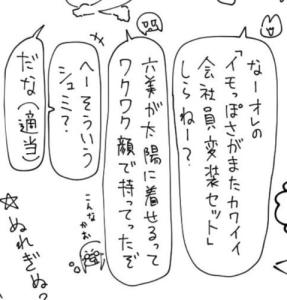 なーオレの
「イモっぽさがまたカワイイ
会社員変装セット」
しらねー?
六美が太陽に着せるって
ワクワク顔で持ってったぞ
こんなかお
へーそういう
シュミ?
だな(適当)
☆ぬれぎぬ?